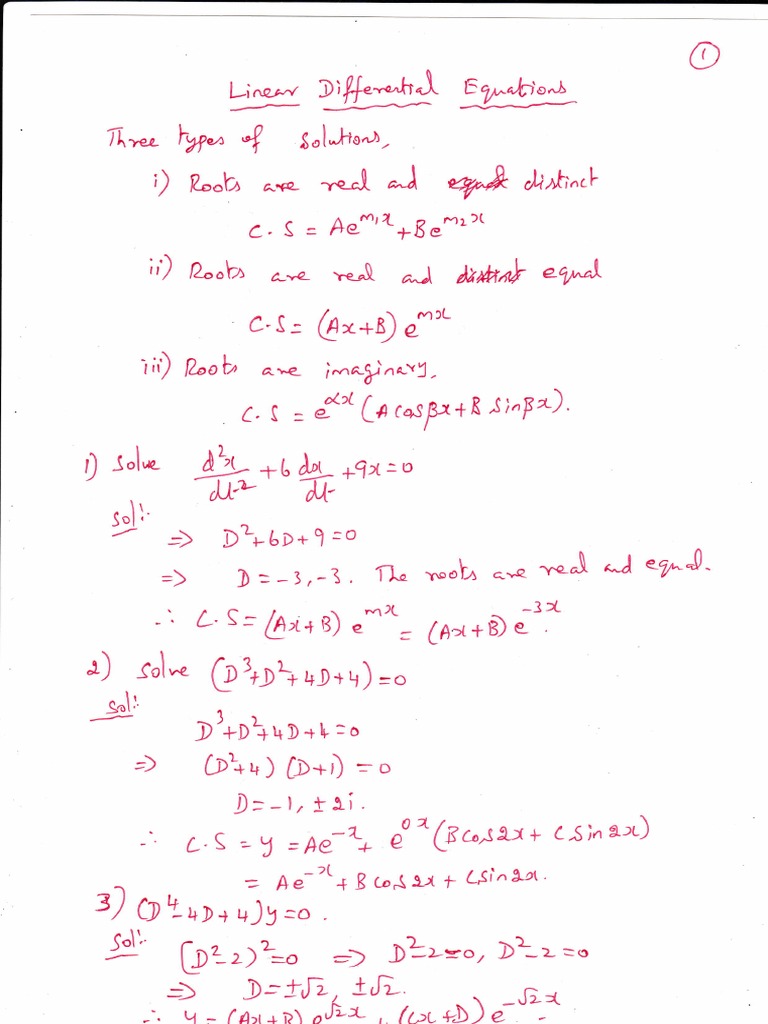 1
Linear Differential Equations
Three types of solutions,
i) Roots are real and distinct
C.S = Ae^{m₁x} + Be^{m₂x}
ii) Roots are real and distinct equal
C.S = (Ax+B) e^{mx}
iii) Roots are imaginary,
C.S = e^{αx} (A cosβx + B sinβx).
1) Solve d²x/dt² + 6 dx/dt + 9x = 0
Sol:
⇒ D²+6D+9=0
⇒ D = -3, -3. The roots are real and equal.
∴ C.S = (Ax+B) e^{mx} = (Ax+B) e^{-3x}.
2) Solve (D³+D²+4D+4)=0
Sol:
D³+D²+4D+4=0
⇒ (D²+4) (D+1) = 0
D = -1, ±2i.
∴ C.S = y = Ae^{-x} + e^{0x} (B cos2x + C sin2x)
= Ae^{-x} + B cos2x + C sin2x.
3) (D⁴-4D+4)y=0.
Sol:
(D²-2)²=0 ⇒ D²-2=0, D²-2=0
⇒ D = ±√2, ±√2.
∴ y = (Ax+B) e^{√2x} + (Cx+D) e^{-√2x}